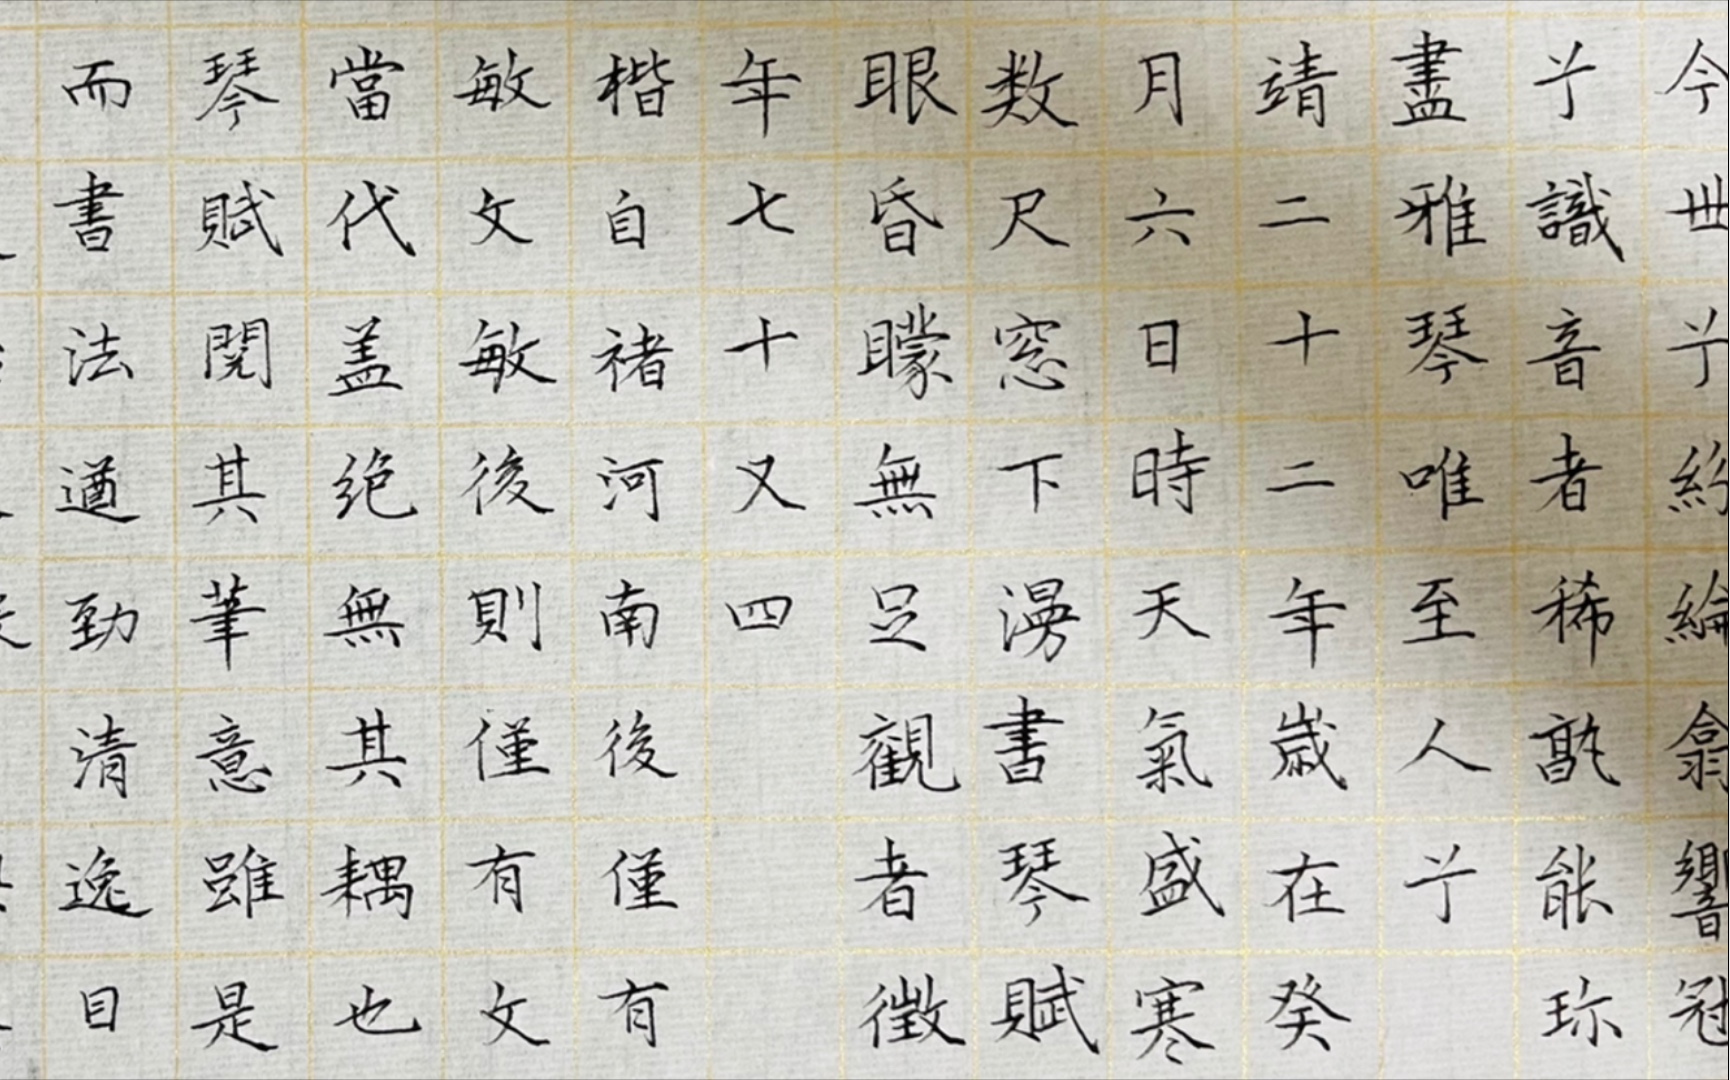 今世兮紛綸翕響冠
兮識音者稀孰能珎
盡雅琴唯至人兮
靖二十二年歲在癸
月六日時天氣盛寒
数尺窓下漫書琴賦
眼昏矇無足觀者徵
年七十又四
楷自褚河南後僅有
敏文敏後則僅有文
當代盖绝無其耦也
琴賦閱其筆意雖是
而書法遒勁清逸目